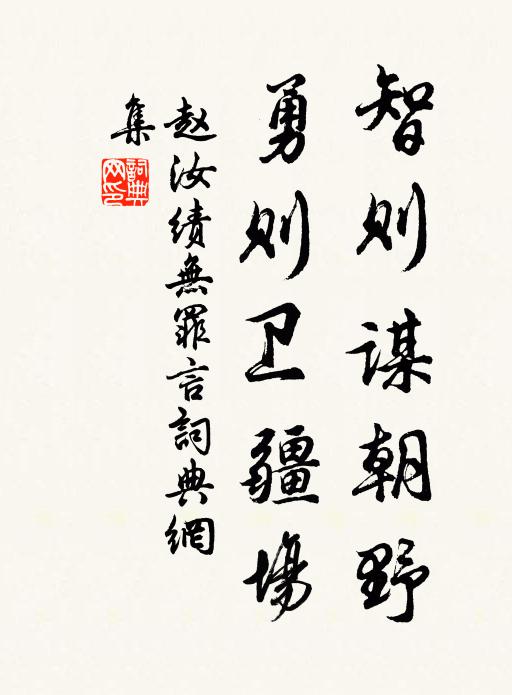 智则谋朝野
勇则卫疆場
赵汝绩無罪言詞典網
集
詞典网印